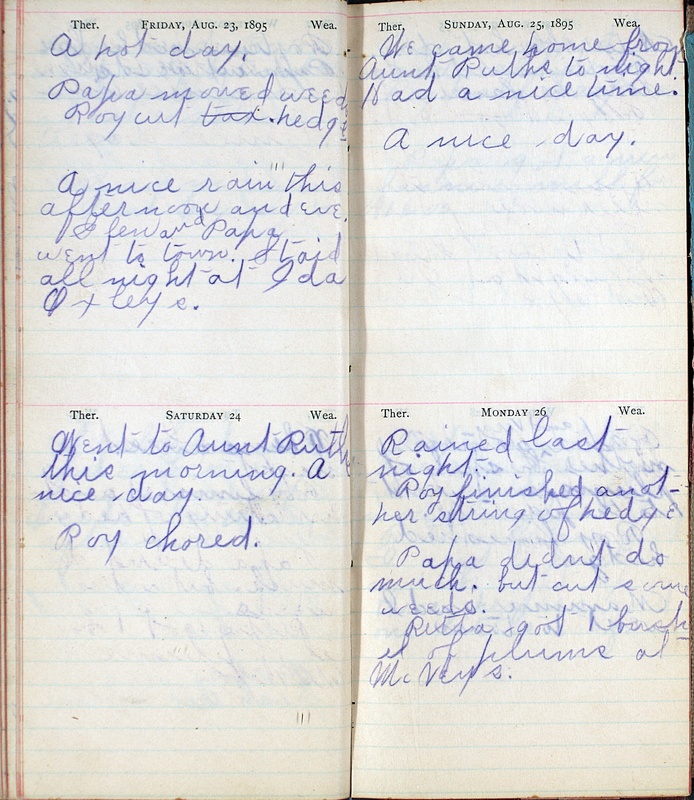 Ther. FRIDAY, AUG. 23, 1895 Wea.
A hot day.
Papa mowed weed
Roy cut tax. hedge
A nice rain this
afternoon and eve.
I len and Papa
went to town. Staid
all night at Ida
Oxleys.
Ther. SATURDAY 24 Wea.
Went to Aunt Ruth
this morning. A
nice day.
Roy chored.
Ther. SUNDAY, AUG. 25, 1895 Wea.
We came home from
Aunt Ruths to night
Had a nice time.
A nice day.
Ther. MONDAY 26 Wea.
Rained last
night.
Roy finished anot-
her string of hedge
Papa didnt do
much. but cut some
weeds.
got 1 bush
el of plums at
McVeys.